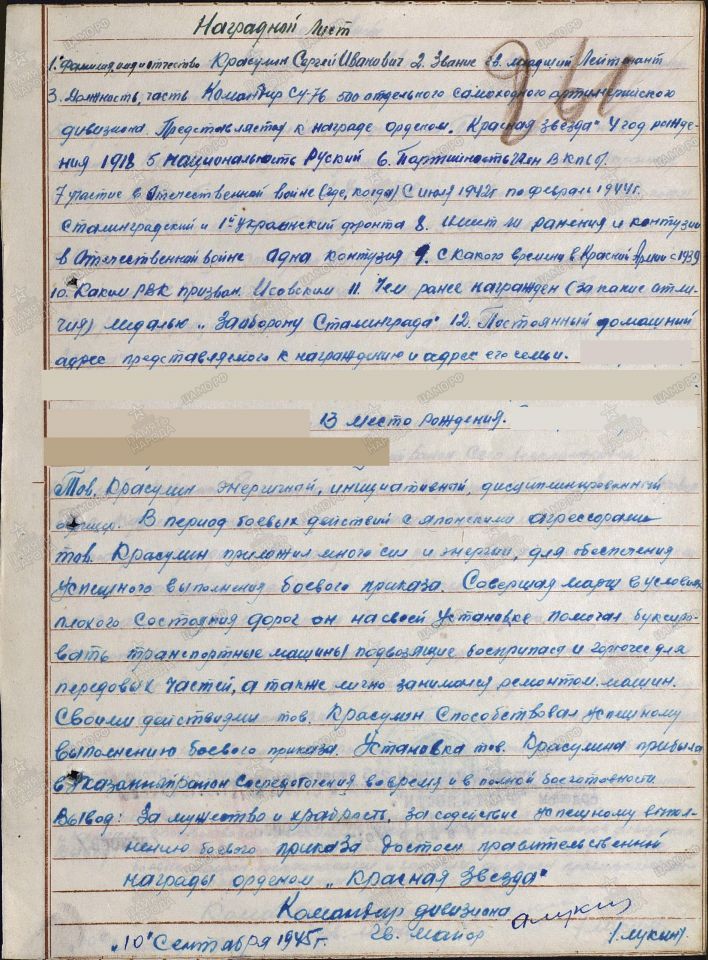 Наградной лист
1. Фамилия, имя, отчество Красулин Сергей Иванович 2. Звание гв. младший Лейтенант
3. Должность, часть Командир СУ-76 500 отдельного самоходного артиллерийского
дивизиона. Представляется к награде орденом "Красная звезда" 4 год рожде-
ния 1918 5 национальность Руский 6. Партийность член ВКП(б)
7 участие в Отечественной войне (где, когда) С июля 1942г по февраль 1944г.
Сталинградский и 1й Украинский фронта 8. имеет ли ранения и контузии
в Отечественной войне одна контузия 9. С какого времени в Красной Армии с 1939
10. Каким РВК призван Исовским 11. Чем ранее награжден (за какие отли-
чия) медалью "За оборону Сталинграда" 12. Постоянный домашний
адрес представляемого к награждению и адрес его семьи.
13 место рождения.
Тов. Красулин энергичный, инициативный, дисциплинированный
офицер. В период боевых действий с японскими агрессорами
тов. Красулин приложил много сил и энергии, для обеспечения
успешного выполнения боевого приказа. Совершая марш в условиях
плохого состояния дорог он на своей установке помогал буксиро-
вать транспортные машины подвозящие боеприпасы и горючее для
передовых частей, а также лично занимался ремонтом машин.
Своими действиями тов. Красулин способствовал успешному
выполнению боевого приказа. Установка тов. Красулина прибыла
в указанный район сосредоточения вовремя и в полной боеготовности
Вывод: За мужество и храбрость, за содействие успешному выпол-
нению боевого приказа достоен правительственной
награды орденом "Красная звезда"
Командир дивизиона
гв. майор /Лукин/
"10" Сентября 1945г.